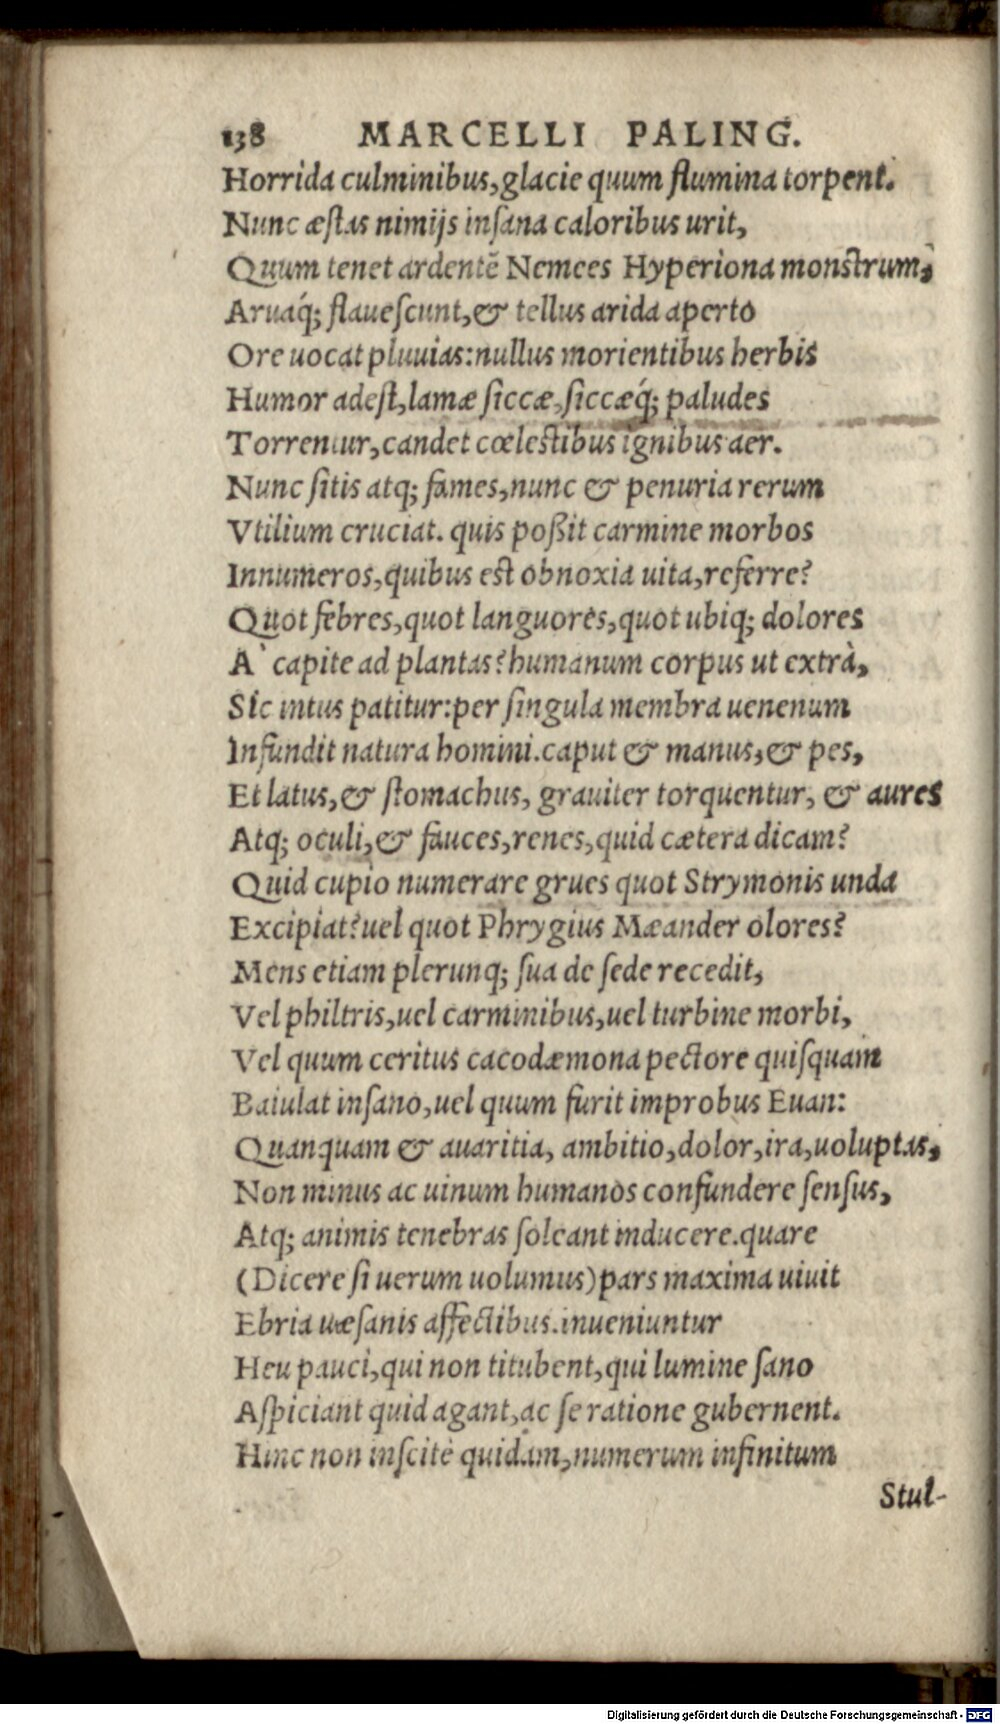 138 MARCELLI PALING.
Horrida culminibus, glacie quum flumina torpent.
Nunc æstas nimijs insana caloribus urit,
Quum tenet ardentē Nemees Hyperiona monstrum,
Aruaq́; flauescunt, & tellus arida aperto
Ore uocat pluuias: nullus morientibus herbis
Humor adest, lamæ siccæ, siccæq́; paludes
Torrentur, candet cœlestibus ignibus aer.
Nunc sitis atq; fames, nunc & penuria rerum
Vtilium cruciat. quis poßit carmine morbos
Innumeros, quibus est obnoxia uita, referre?
Quot febres, quot languores, quot ubiq; dolores
A` capite ad plantas? humanum corpus ut extrà,
Sic intus patitur: per singula membra uenenum
Infundit natura homini. caput & manus, & pes,
Et latus, & stomachus, grauiter torquentur, & aures
Atq; oculi, & fauces, renes, quid cætera dicam?
Quid cupio numerare grues quot Strymonis unda
Excipiat? uel quot Phrygius Mæander olores?
Mens etiam plerunq; sua de sede recedit,
Vel philtris, uel carminibus, uel turbine morbi,
Vel quum ceritus cacodæmona pectore quisquam
Baiulat insano, uel quum furit improbus Euan:
Quanquam & auaritia, ambitio, dolor, ira, uoluptas,
Non minus ac uinum humanos confundere sensus,
Atq; animis tenebras soleant inducere. quare
(Dicere si uerum uolumus) pars maxima uiuit
Ebria uæsanis affectibus. inueniuntur
Heu pauci, qui non titubent, qui lumine sano
Aspiciant quid agant, ac se ratione gubernent.
Hinc non inscitè quidam, numerum infinitum
Stul-
Digitalisierung gefördert durch die Deutsche Forschungsgemeinschaft - DFG